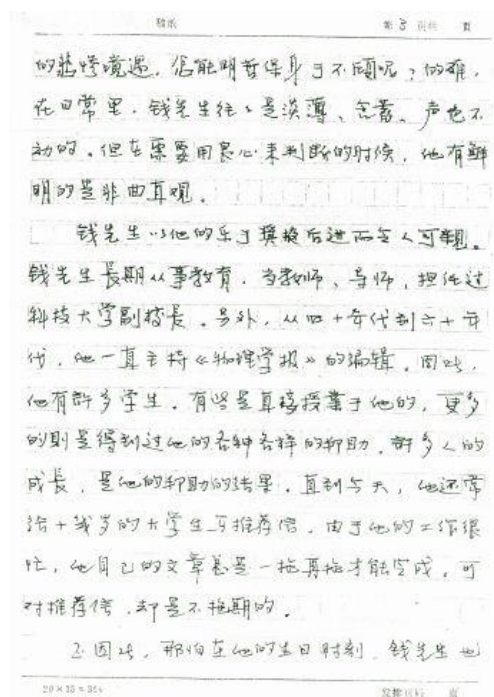 第 3 页 共 页
的悲惨境遇，怎能明哲保身于不顾呢？的确，
在日常里，钱先生往々是淡薄、含蓄、声色不
动的。但在需要用良心来判断的时候，他有鲜
明的是非曲直观。
钱先生以他的乐于奖掖后进而令人可亲。
钱先生長期从事教育，当教师、导师，担任过
科技大学副校长。另外，从四十年代到六十年
代，他一直主持《物理学报》的编辑。因此，
他有許多学生。有些是直接授業于他的，更多
的则是得到过他的各种各样的帮助。許多人的
成長，是他的帮助的结果。直到今天，他还常
给十几岁的大学生写推荐信。由于他的工作很
忙，他自己的文章总是一拖再拖才能完成。可
对推荐信，却是不拖期的。
正因此，那怕在他的生日时刻，钱先生也